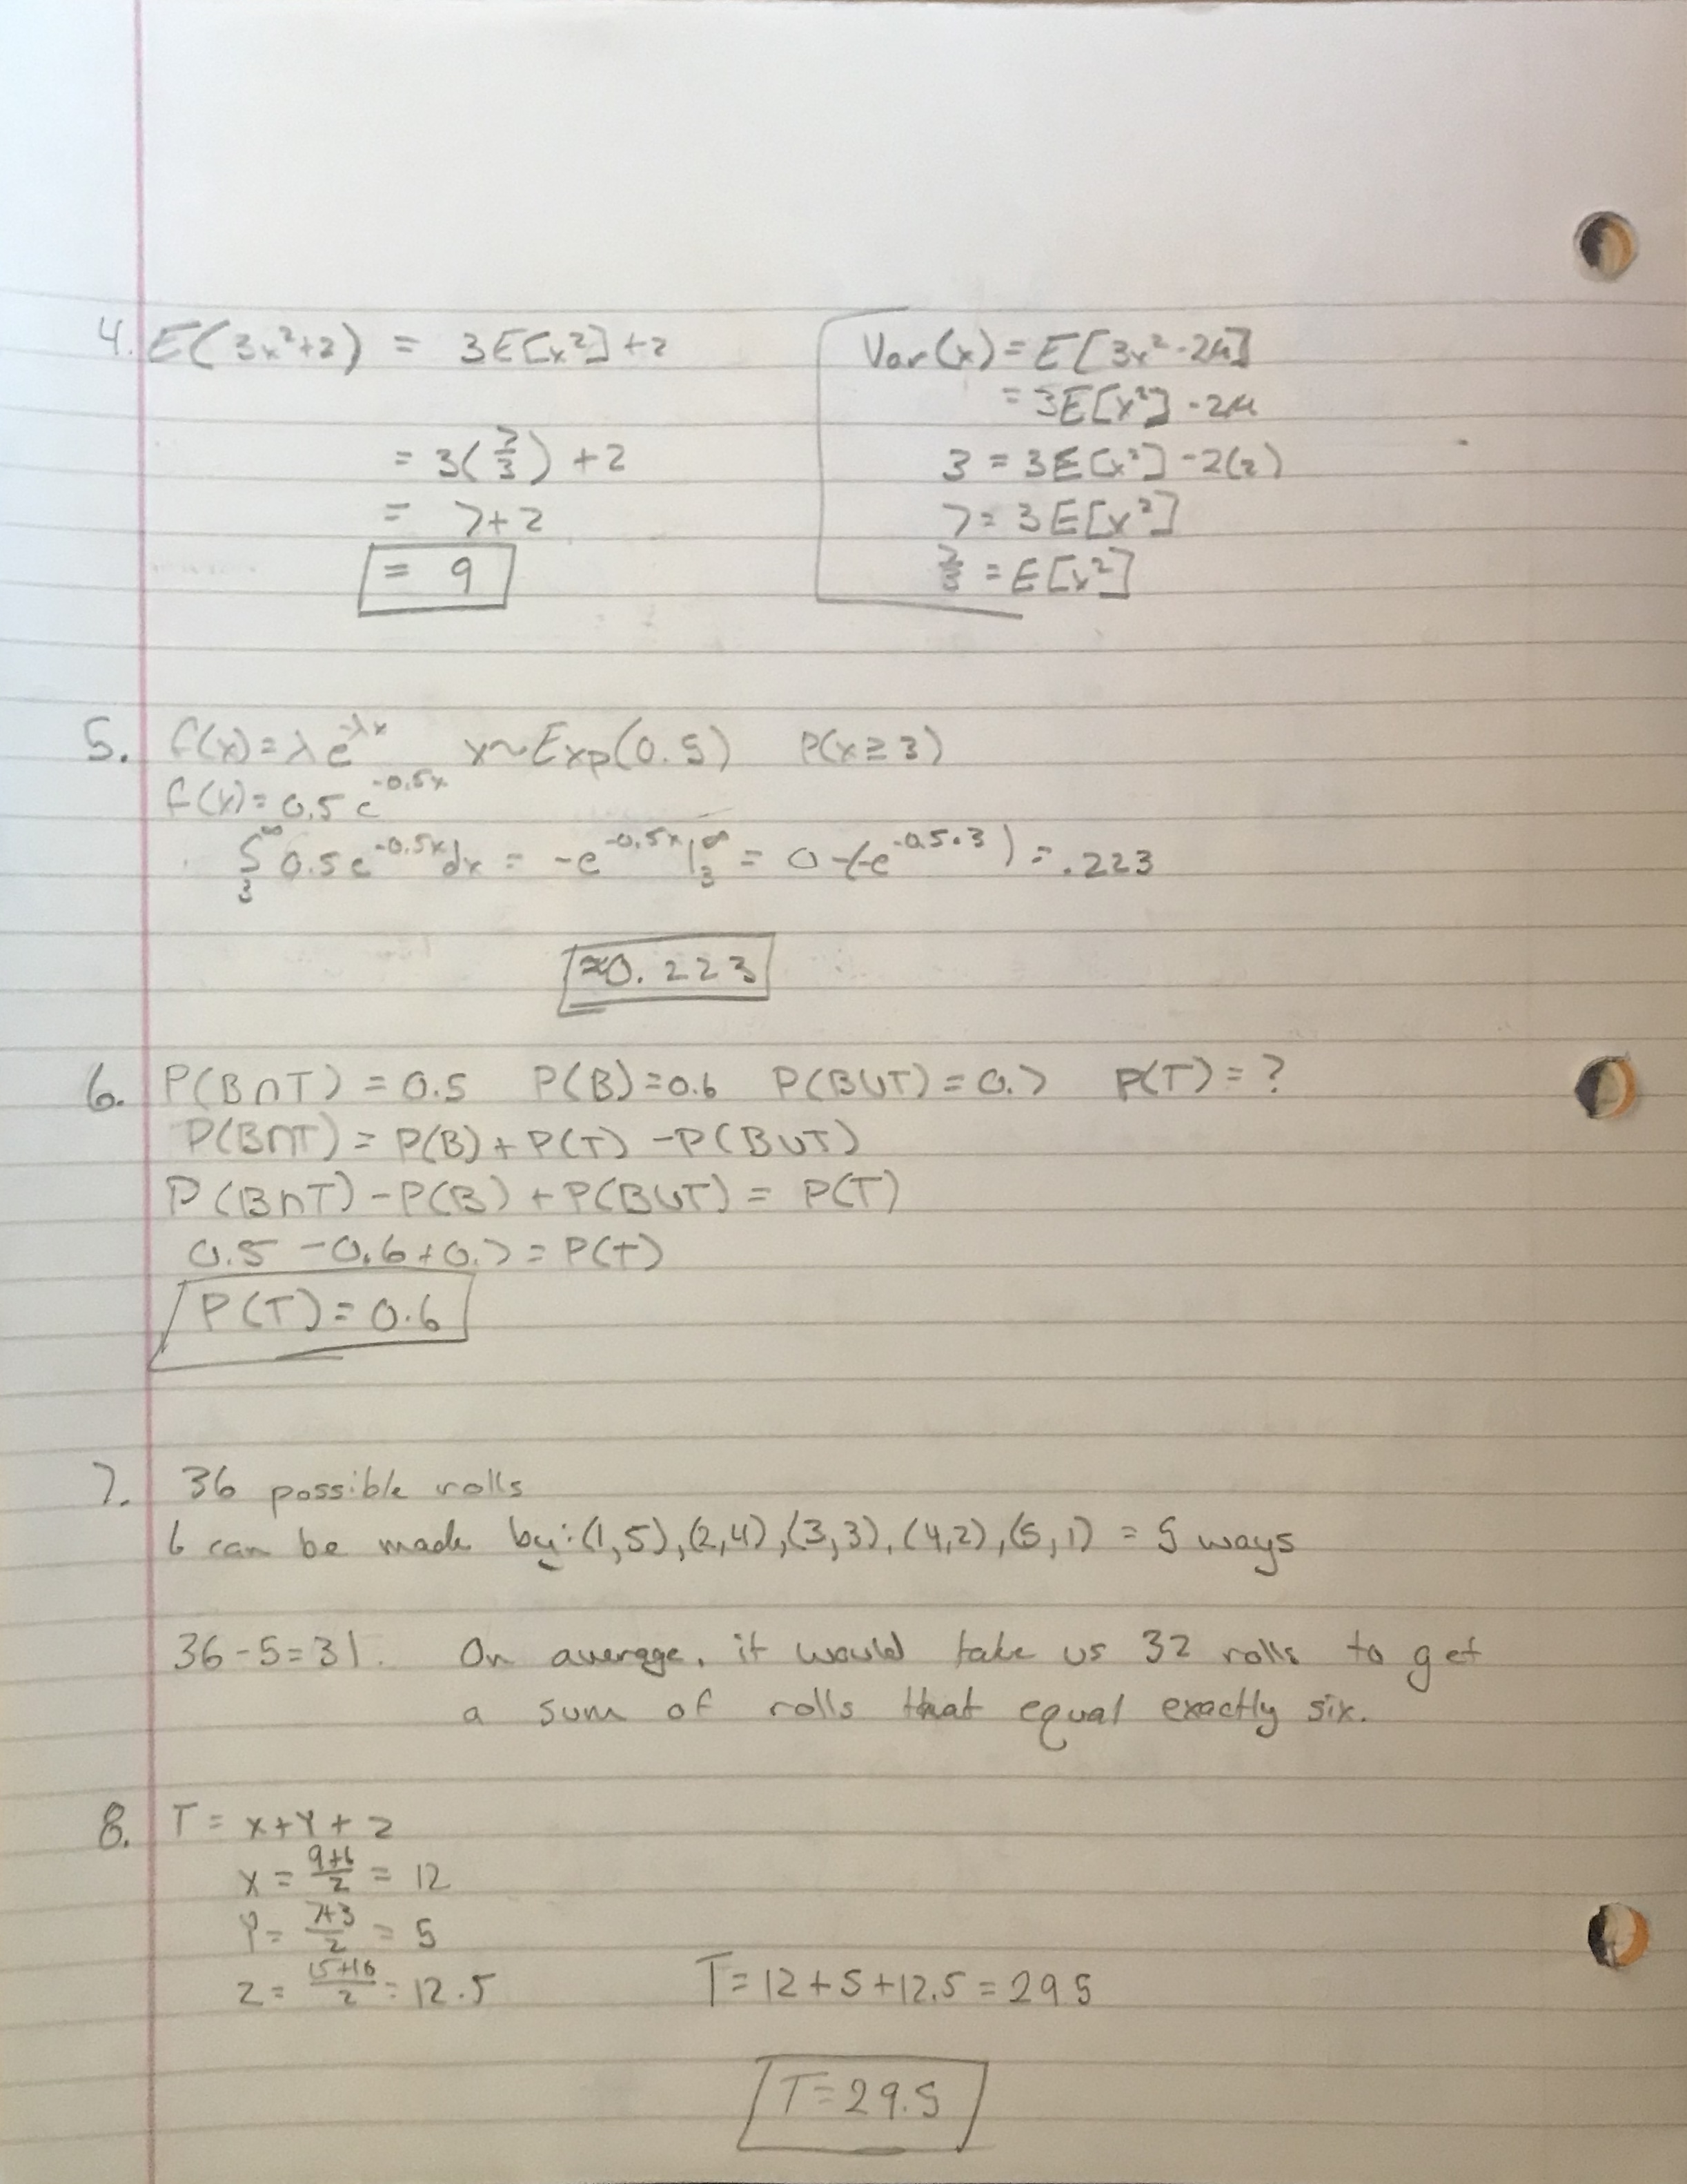 4. E(3x²+2) = 3E[x²]+2
= 3(7/3) + 2
= 7+2
= 9
Var(x) = E[3x² - 2μ]
= 3E[x²] - 2μ
3 = 3E[x²] - 2(2)
7 = 3E[x²]
7/3 = E[x²]
5. f(x) = λe^-λx x~Exp(0.5) P(x ≥ 3)
f(x) = 0.5e^-0.5x
∫₃^∞ 0.5e^-0.5x dx = -e^-0.5x |₃^∞ = 0-(-e^-0.5·3) = .223
≈0.223
6. P(B∩T) = 0.5 P(B)=0.6 P(B∪T) = 0.7 P(T) = ?
P(B∩T) = P(B) + P(T) - P(B∪T)
P(B∩T) - P(B) + P(B∪T) = P(T)
0.5 - 0.6 + 0.7 = P(T)
P(T) = 0.6
7. 36 possible rolls
6 can be made by: (1,5),(2,4),(3,3),(4,2),(5,1) = 5 ways
36-5=31. On average, it would take us 32 rolls to get
a sum of rolls that equal exactly six.
8. T = x+Y+z
x = 9+6/2 = 12
Y = 7+3/2 = 5
z = 15+10/2 = 12.5
T = 12+5+12.5 = 29.5
T = 29.5